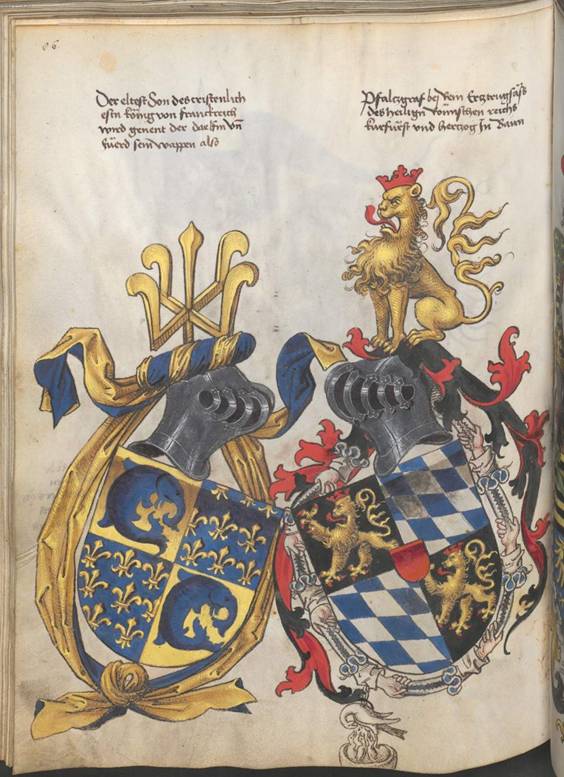 86
Der eltest Son des cristenlich
esten königs von franckreich
wird genent der dalfin vñ
fuerd sein wappen also
Pfaltzgraf bey Rein Ertztrugsäß
des heilign Römischen reichs
kurfürst vnd Hertzog In Bairn